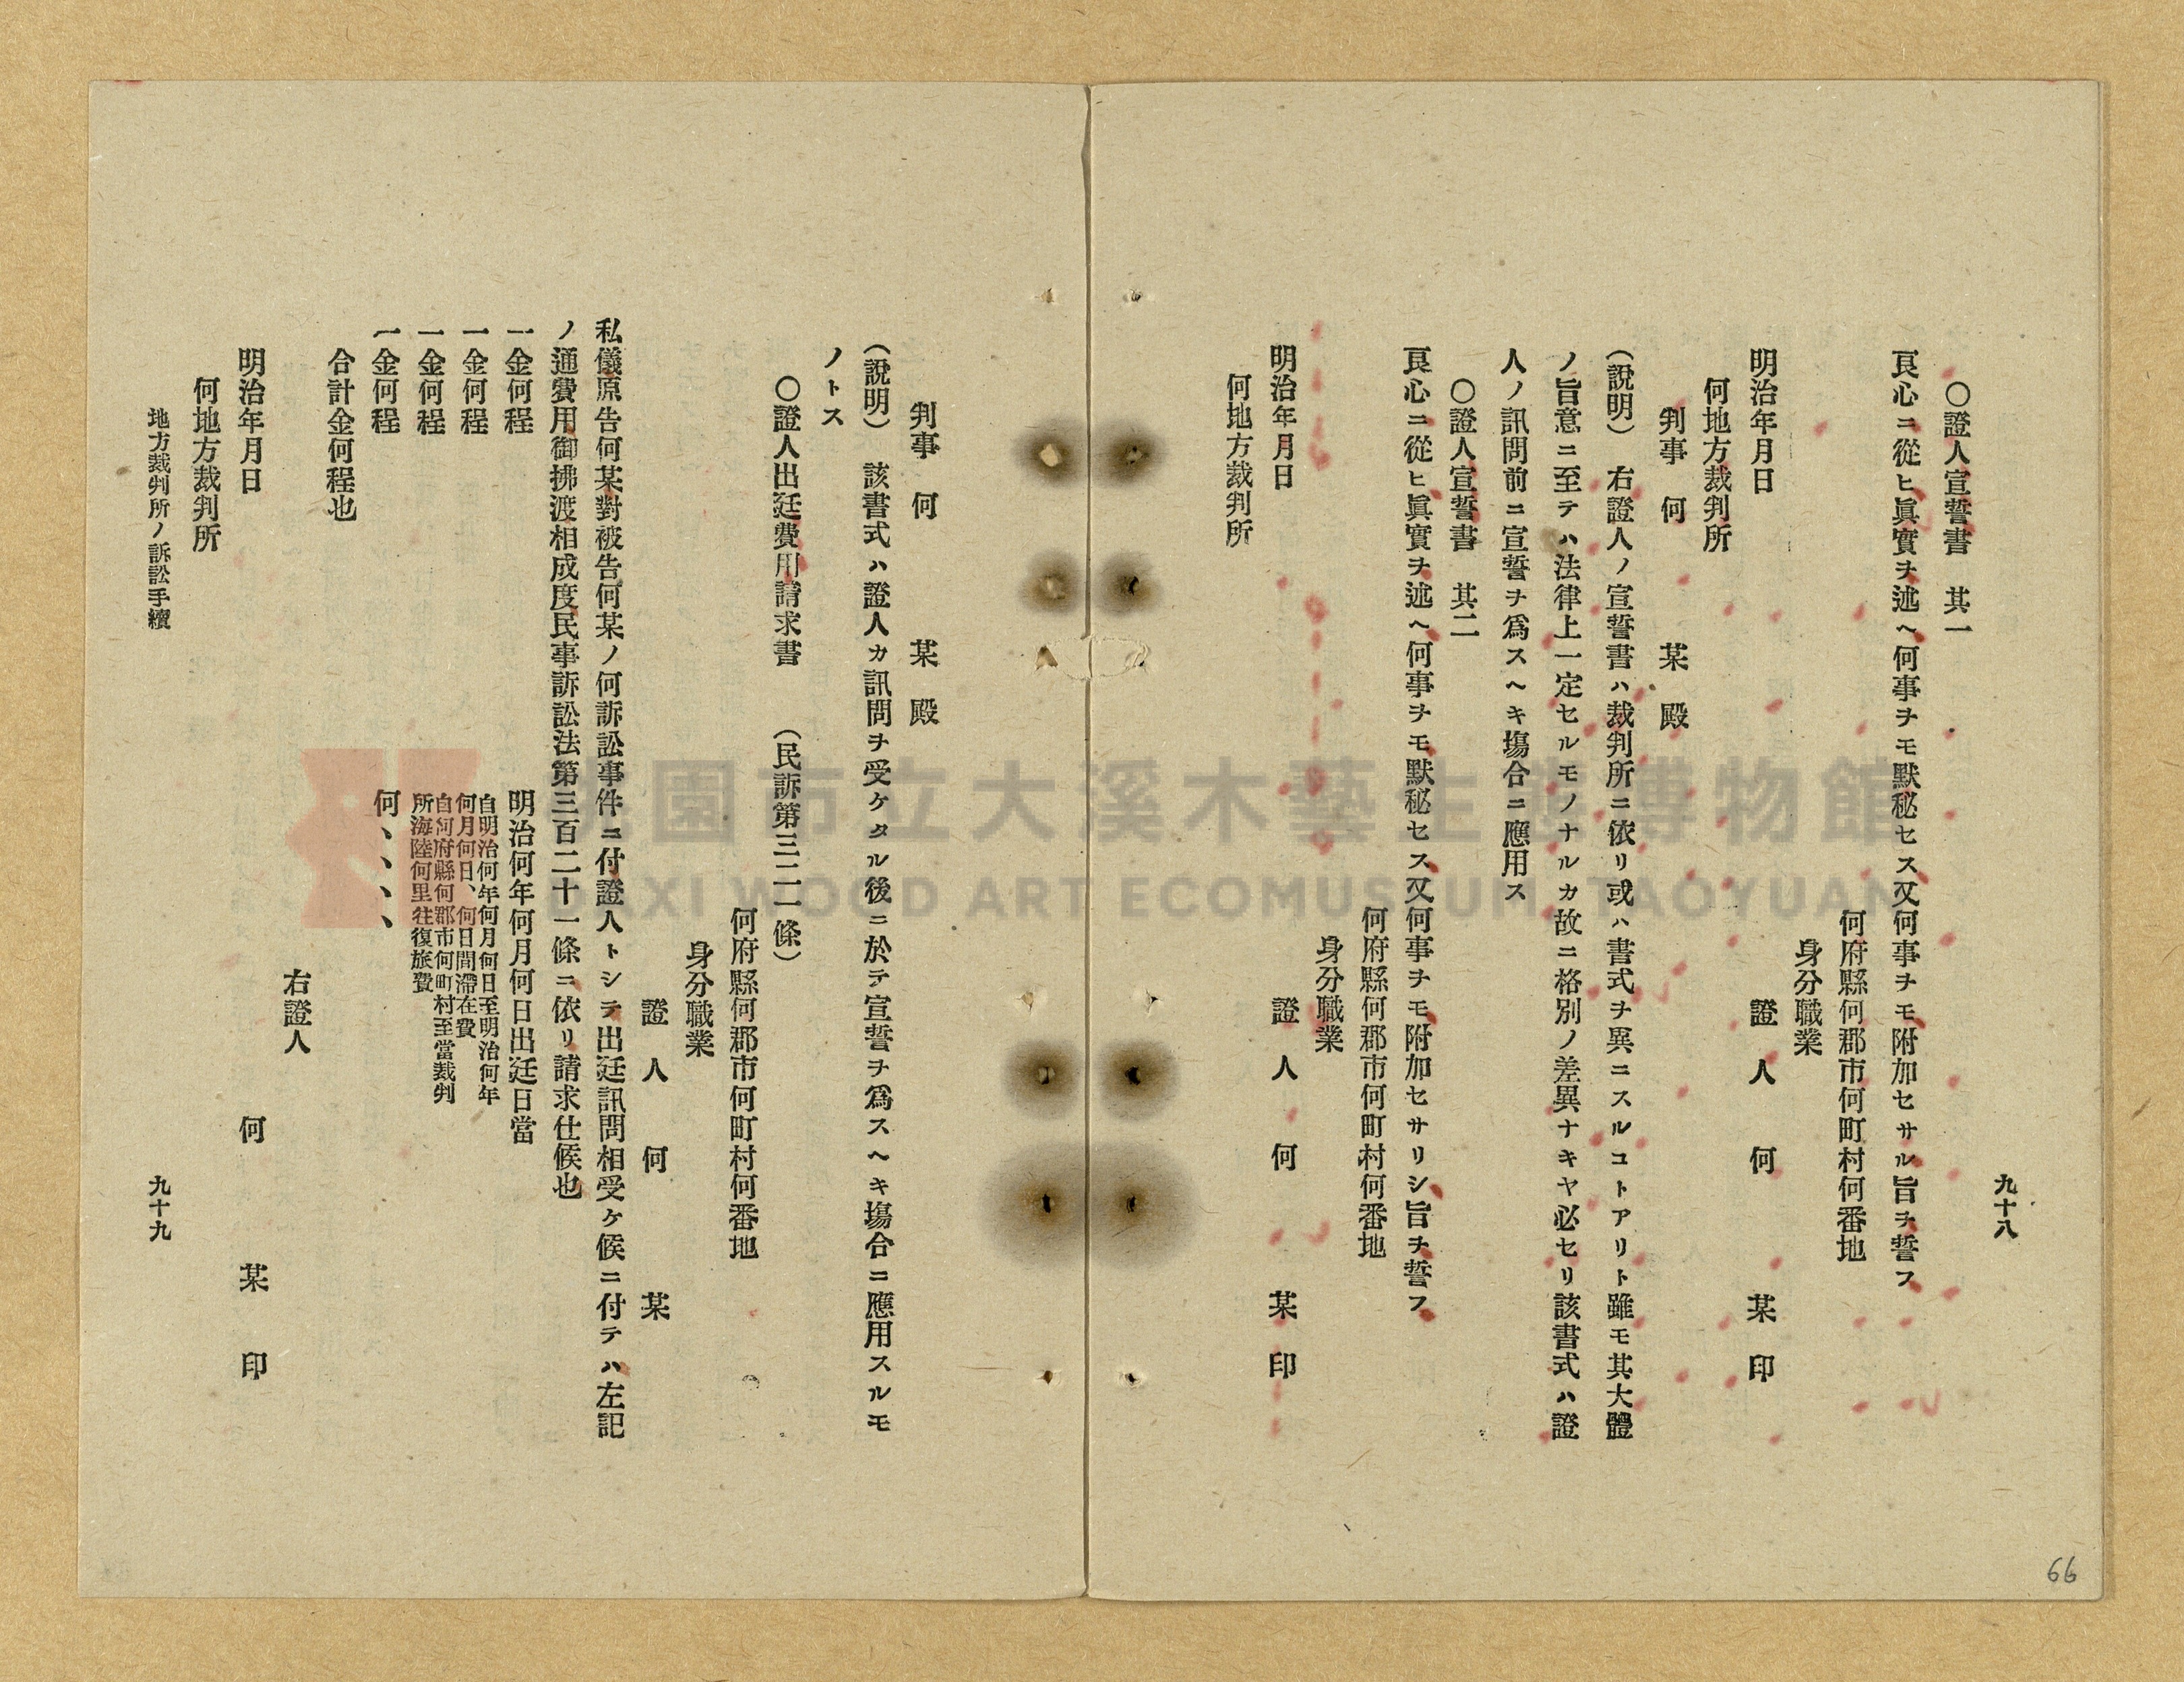 九十八
〇證人宣誓書　其一
良心ニ從ヒ眞實ヲ述ヘ何事ヲモ默秘セス又何事ヲモ附加セサル旨ヲ誓フ
何府縣何郡市何町村何番地
身分職業
證人　何　某　印
明治年月日
何地方裁判所
判事　何　某　殿
（說明）　右證人ノ宣誓書ハ裁判所ニ依リ或ハ書式ヲ異ニスルコトアリト雖モ其大體
ノ旨意ニ至テハ法律上一定セルモノナルカ故ニ格別ノ差異ナキヤ必セリ該書式ハ證
人ノ訊問前ニ宣誓ヲ爲スヘキ塲合ニ應用ス
〇證人宣誓書　其二
良心ニ從ヒ眞實ヲ述ヘ何事ヲモ默秘セス又何事ヲモ附加セサリシ旨ヲ誓フ
何府縣何郡市何町村何番地
身分職業
證人　何　某　印
明治年月日
何地方裁判所
判事　何　某　殿
（說明）　該書式ハ證人カ訊問ヲ受ケタル後ニ於テ宣誓ヲ爲スヘキ塲合ニ應用スルモ
ノトス
〇證人出廷費用請求書　（民訴第三二一條）
何府縣何郡市何町村何番地
身分職業
證人　何　某
私儀原告何某對被告何某ノ何訴訟事件ニ付證人トシテ出廷訊問相受ケ候ニ付テハ左記
ノ通費用御拂渡相成度民事訴訟法第三百二十一條ニ依リ請求仕候也
一金何程　明治何年何月何日出廷日當
一金何程　自明治何年何月何日至明治何年
何月何日、何日間滯在費
一金何程　自何府縣何郡市何町村至當裁判
所海陸何里往復旅費
一金何程　何、、、、
合計金何程也
右證人
明治年月日　何　某　印
何地方裁判所
地方裁判所ノ訴訟手續　九十九
66
園市立大溪木藝生態博物館
DAXI WOOD ART ECOMUSEUM, TAOYUAN